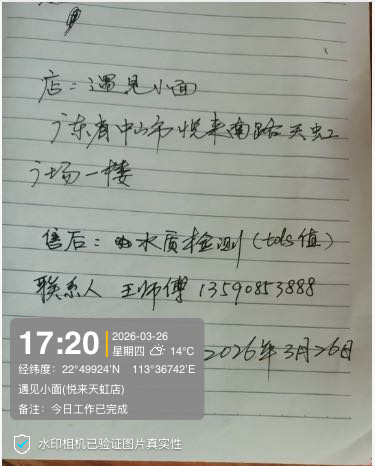 店：遇见小面
广东省中山市悦来南路天虹
广场一楼
售后：水质检测(tds值)
联系人 王师傅 13590853888
2026年3月26日
17:20
2026-03-26
星期四 14°C
经纬度：22°49924'N 113°36742'E
遇见小面(悦来天虹店)
备注：今日工作已完成
水印相机已验证图片真实性